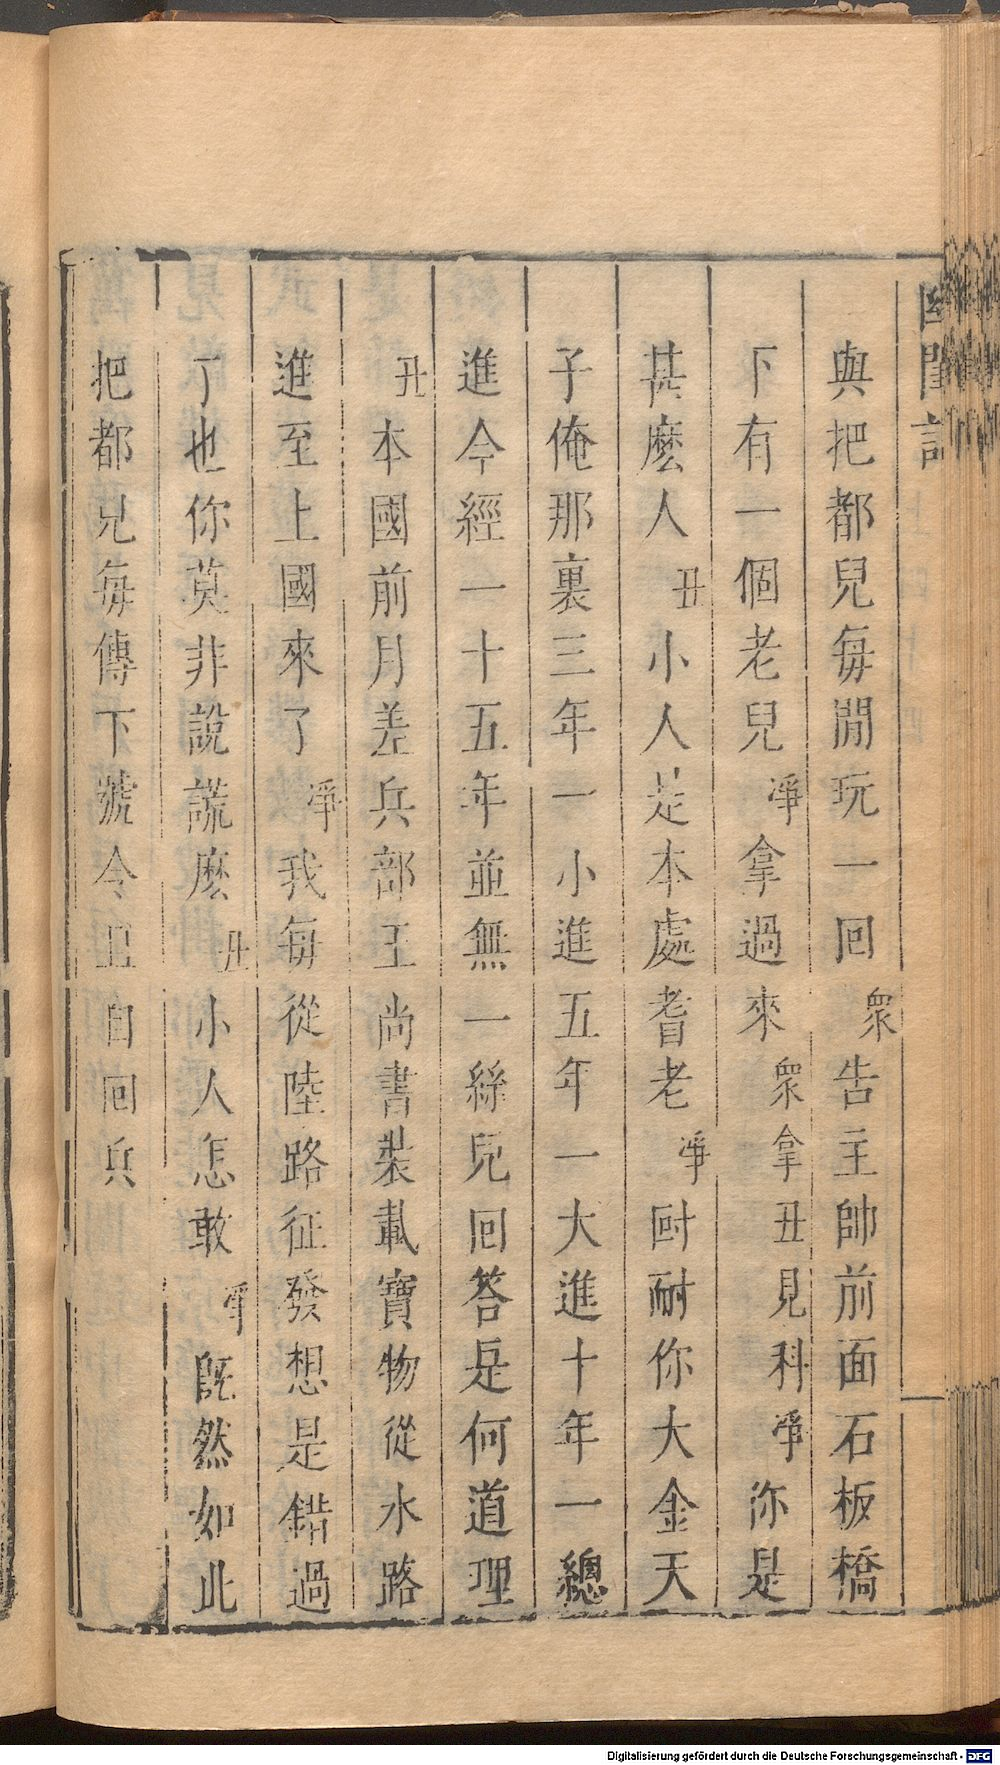 幽閨記
與把都兒每閒玩一回衆告主帥前面石板橋
下有一個老兒淨拿過來衆拿丑見科淨你是
甚麽人丑小人是本處耆老淨尀耐你大金天
子俺那裏三年一小進五年一大進十年一總
進今經一十五年並無一絲兒回答是何道理
丑本國前月差兵部王尚書裝載寶物從水路
進至上國來了淨我每從陸路征發想是錯過
了也你莫非說謊麽丑小人怎敢淨旣然如此
把都兒每傳下號令且自回兵
Digitalisierung gefördert durch die Deutsche Forschungsgemeinschaft - DFG